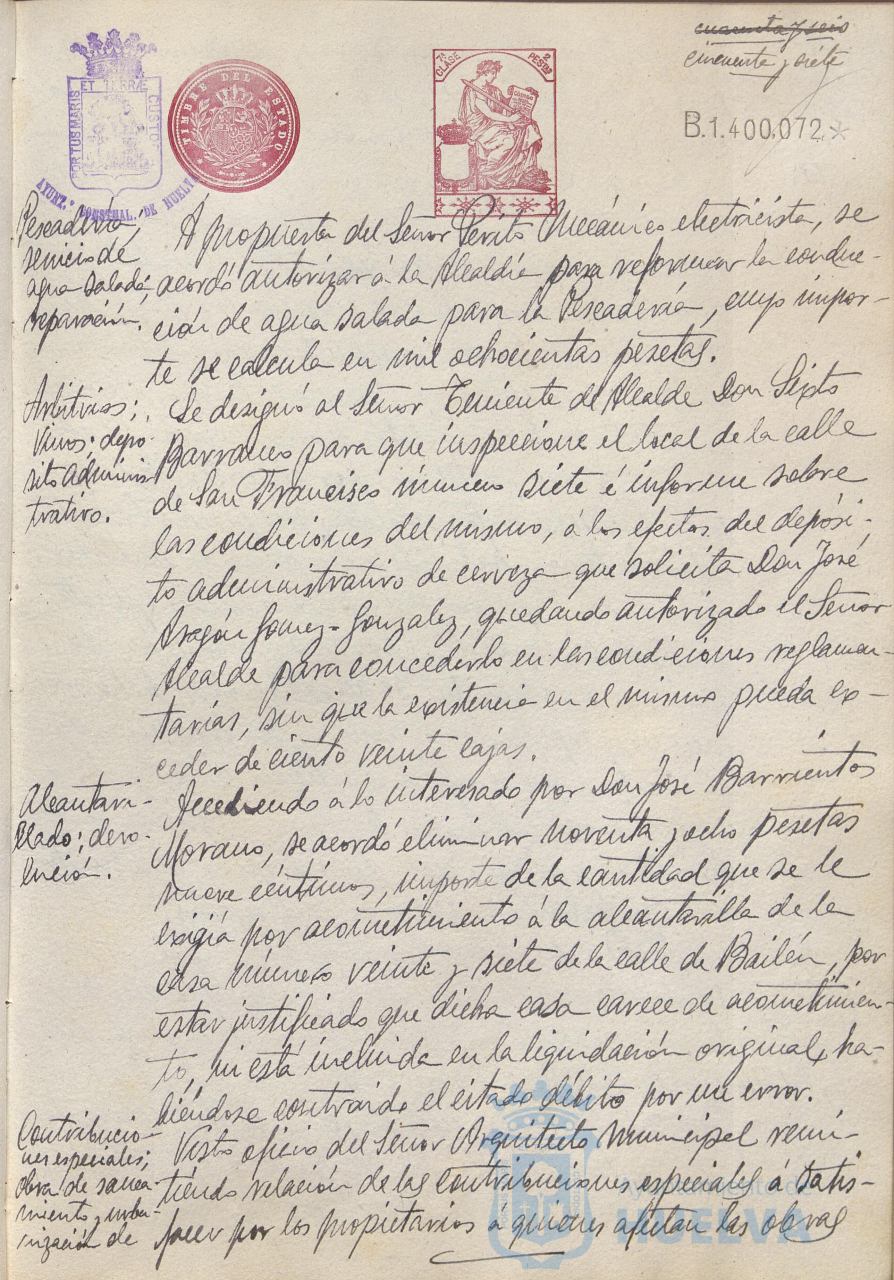 cuarenta y seis
cincuenta y siete
B.1.400,072
ET TERRÆ
PORTUS MARIS
CUSTO
AYUNT.º CONSTNAL. DE HUELVA
TIMBRE DEL ESTADO
7ª CLASE
2 PESTAS
Pescadería,
servicio de
agua salada;
reparación.
A propuesta del Señor Perito Mecánico electricista, se
acordó autorizar á la Alcaldía para reformar la conduc-
ción de agua salada para la Pescadería, cuyo impor-
te se calcula en mil ochocientas pesetas.
Arbitrios;
vinos; depo-
sito adminis-
trativo.
Se designó al Señor Teniente de Alcalde Don Sixto
Barranco para que inspeccione el local de la calle
de San Francisco número siete é informe sobre
las condiciones del mismo, á los efectos del depósi-
to administrativo de cerveza que solicita Don José
Aragón Gomez-Gonzalez, quedando autorizado el Señor
Alcalde para concederlo en las condiciones reglamen-
tarias, sin que la existencia en el mismo pueda ex-
ceder de ciento veinte cajas.
Alcantari-
llado; devo-
lución.
Accediendo á lo interesado por Don José Barrientos
Morano, se acordó eliminar noventa y ocho pesetas
nueve céntimos, importe de la cantidad que se le
exigía por acometimiento á la alcantarilla de la
casa número veinte y siete de la calle de Bailén, por
estar justificado que dicha casa carece de acometimien-
to, ni está incluida en la liquidación original, ha-
biéndose contraido el citado débito por un error.
Contribucio-
nes especiales;
obra de sanea-
miento y urba-
nización de
Visto oficio del Señor Arquitecto Municipal remi-
tiendo relación de las contribuciones especiales á satis-
facer por los propietarios á quienes afectan las obras
Ayuntamiento de
HUELVA